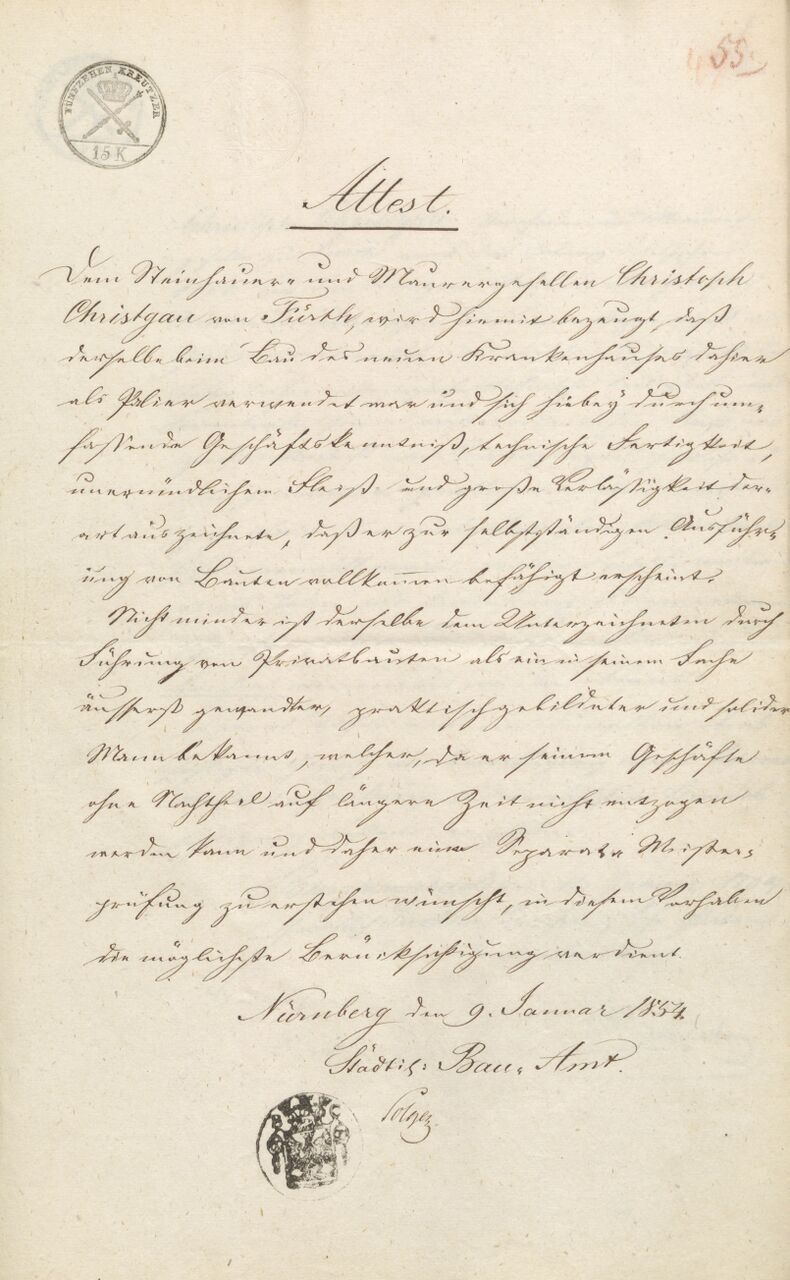 55.
FÜNFZEHEN KREUTZER
15 K
Attest.
Dem Steinhauer- und Maurergesellen Christoph
Christgau von Fürth, wird hiemit bezeugt, daß
derselbe beim Bau des neuen Krankenhauses dahier
als Palier verwendet war und sich hiebey durch um-
fassende Geschäftskenntniß, technische Fertigkeit,
unermüdlichem Fleiß und große Verläßigkeit der-
art auszeichnete, daß er zur selbstständigen Ausführ-
ung von Bauten vollkommen befähigt erscheint.
Nicht minder ist derselbe dem Unterzeichneten durch
Führung von Privatbauten als ein in seinem Fache
äusserst gewandter, praktisch gebildeter und solider
Mann bekannt, welcher, da er seinem Geschäfte
ohne Nachtheil auf längere Zeit nicht entzogen
werden kann und daher eine Separat-Meister-
prüfung zu erstehen wünscht, in diesem Vorhaben
die möglichste Berücksichtigung verdient.
Nürnberg den 9. Januar 1854.
Städtis: Bau-Amt.
Solger